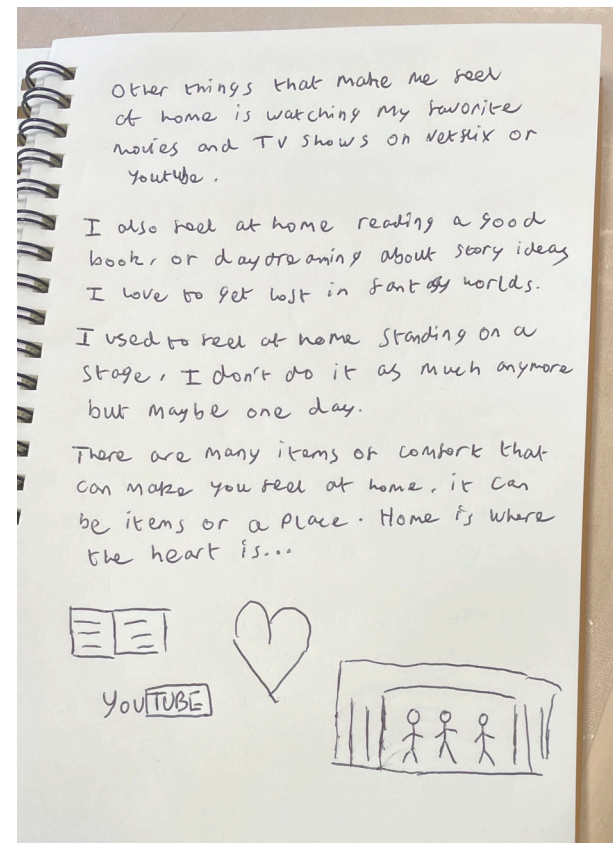 Other things that make me feel
at home is watching my favorite
movies and TV shows on Netflix or
Youtube.
I also feel at home reading a good
book, or daydreaming about story ideas
I love to get lost in fantasy worlds.
I used to feel at home standing on a
stage, I don't do it as much anymore
but maybe one day.
There are many items of comfort that
can make you feel at home, it can
be items or a place. Home is where
the heart is...
YouTUBE